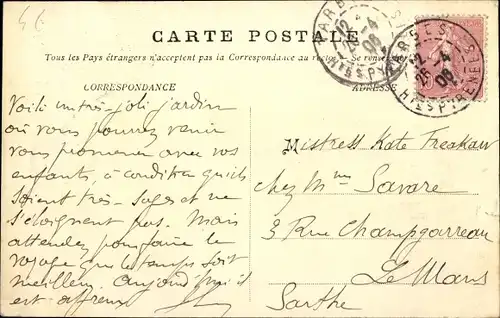 CARTE POSTALE
Tous les Pays étrangers n'acceptent pas la Correspondance au recto. Se rens
CORRESPONDANCE
ADRESSE
TARBES
12
25-4
06
HTES PYRENEES
Voilà un très joli jardin
où vous pourrez venir
vous promener avec vos
enfants, à condition qu'ils
soient très sages et ne
s'éloignent pas. Mais
attendez pour faire le
voyage que le temps soit
meilleur. Aujourd'hui il
est affreux
Mistress Kate Freakaw
chez Mme Savare
3 Rue Champgarreau
Le Mans
Sarthe